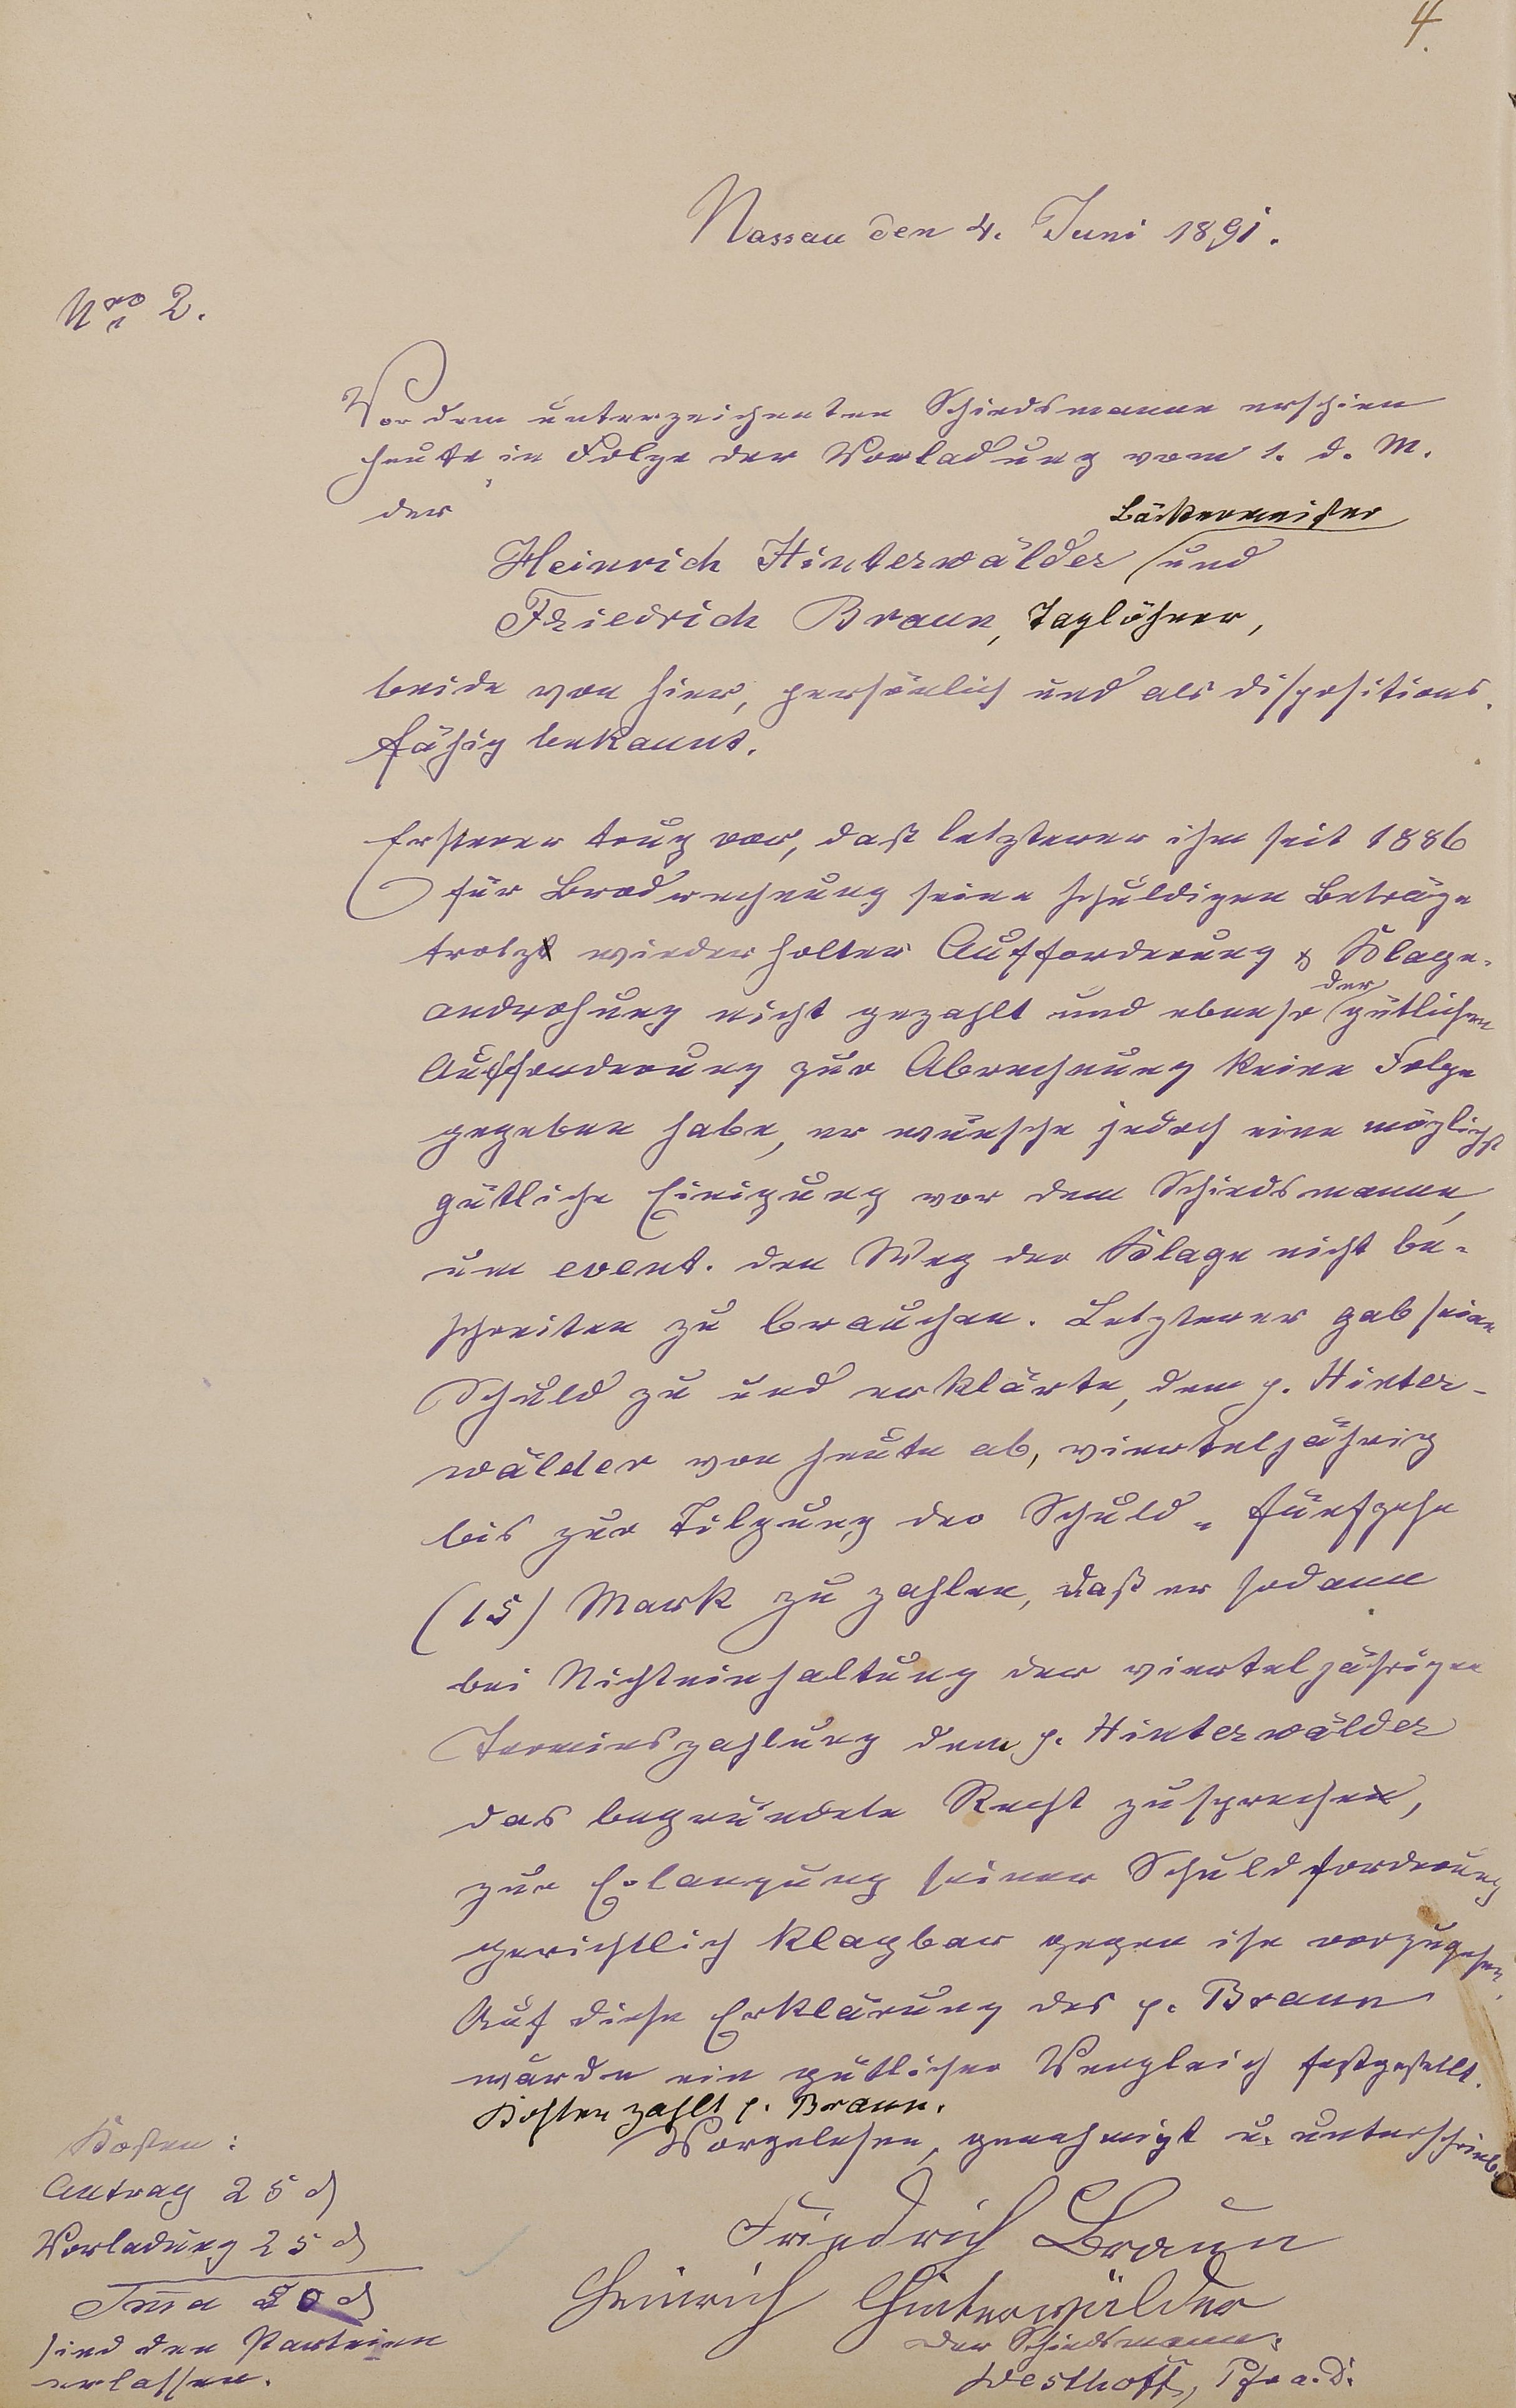 4.
Nassau den 4. Juni 1891.
Nro 2.
Vor dem unterzeichneten Schiedsmanne erschien
heute, in Folge der Vorladung vom 1. d. M.
der
Bäckermeister
Heinrich Hinterwälder und
Friedrich Braun, Taglöhner,
beide von hier, persönlich und als dispositions-
fähig bekannt.
Ersterer trug vor, daß letzterer ihm seit 1886
für Brodrechnung seine schuldigen Beträge
trotz wiederholter Aufforderung & Klage-
androhung nicht gezahlt und ebenso der gütlichen
Aufforderung zur Abrechnung keine Folge
gegeben habe, er wünsche jedoch eine möglichst
gütliche Einigung vor dem Schiedsmanne,
um event. den Weg der Klage nicht be-
schreiten zu brauchen. Letzterer gab seine
Schuld zu und erklärte, dem p. Hinter-
wälder von heute ab, vierteljährig
bis zur Tilgung der Schuld - fünfzehn
(15) Mark zu zahlen, daß er sodann
bei Nichteinhaltung der vierteljährigen
Terminszahlung dem p. Hinterwälder
das begründete Recht zuspreche,
zur Erlangung seiner Schuldforderung
gerichtlich klagbar gegen ihn vorzugehen.
Auf diese Erklärung des p. Braun
wurde ein gütlicher Vergleich festgestellt.
Kosten zahlt p. Braun.
Vorgelesen, genehmigt u. unterschrieben
Friedrich Braun
Heinrich Hinterwälder
Der Schiedsmann.
Westhoff, a. D.
Kosten:
Antrag 25 ₰
Vorladung 25 ₰
Sma 50 ₰
sind den Parteien
erlassen.